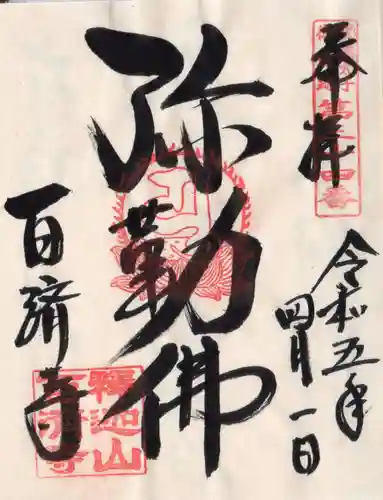 奉拝
令和五年
四月一日
弥勒佛
百濟寺
釋迦山
百濟寺